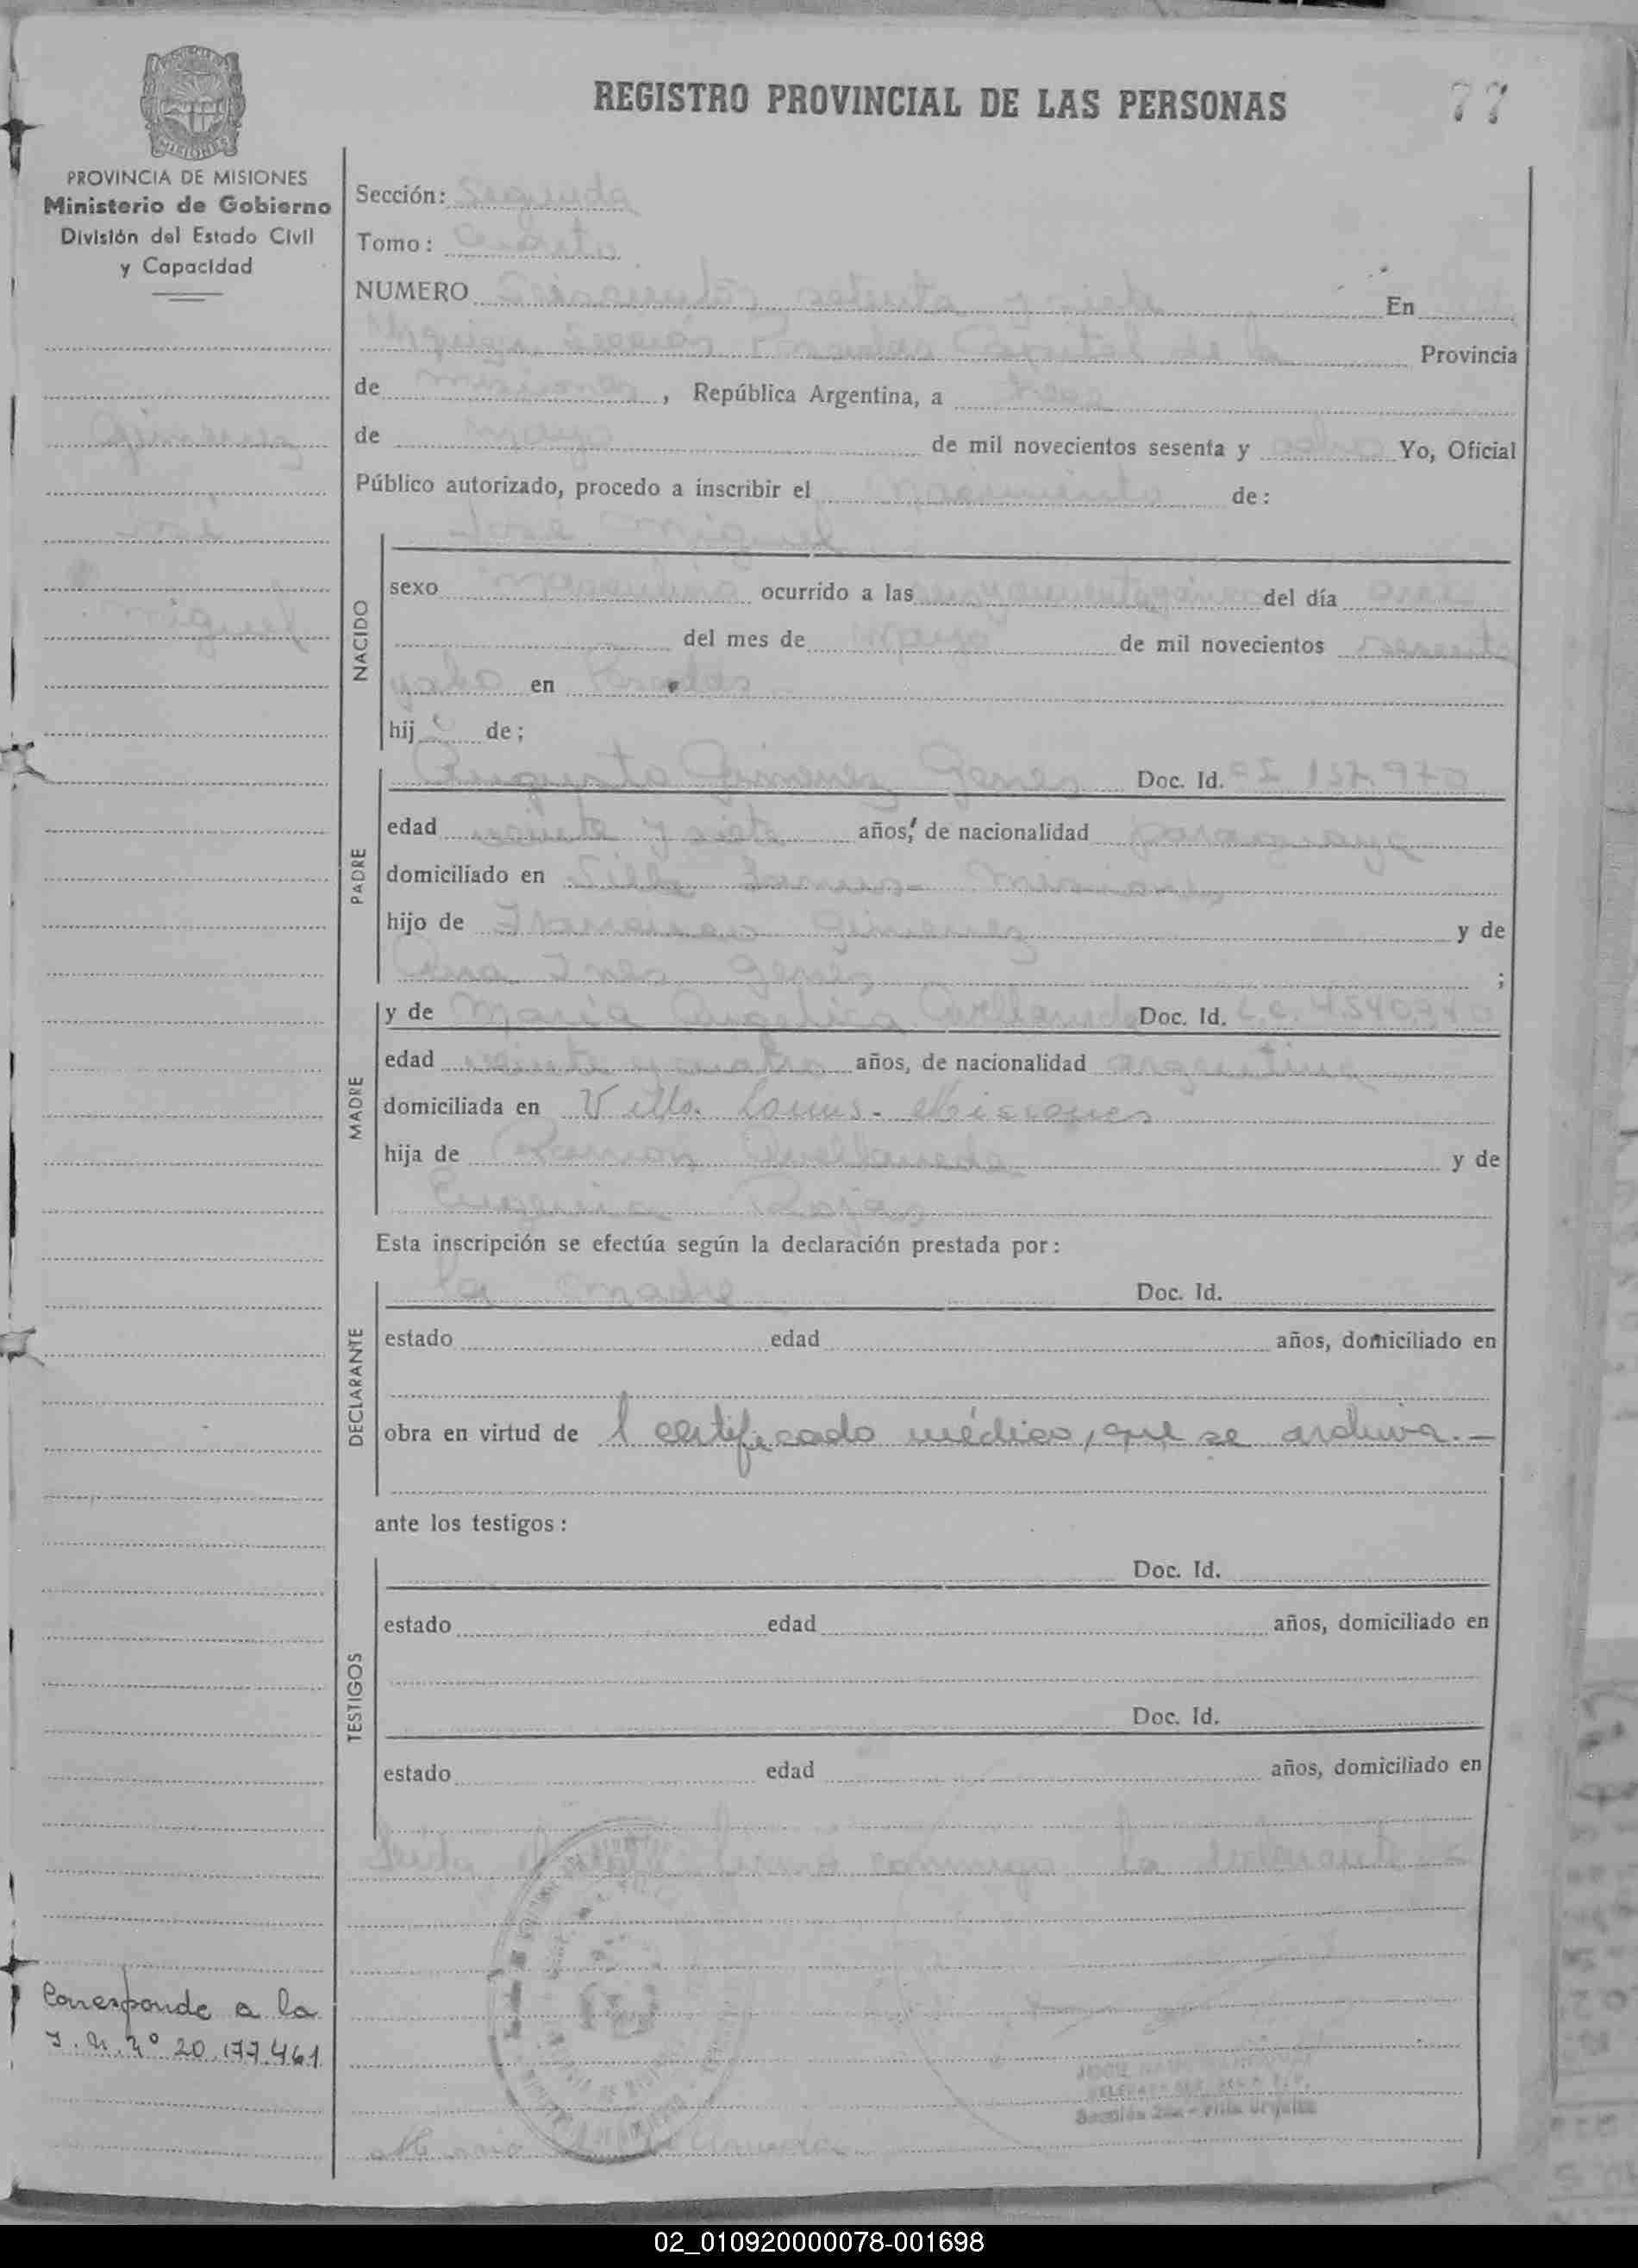 REGISTRO PROVINCIAL DE LAS PERSONAS
77
MISIONES
PROVINCIA DE MISIONES
Ministerio de Gobierno
División del Estado Civil
y Capacidad
Gimenez
José
Miguel
Sección: Segunda
Tomo: Cuarto
NUMERO Seiscientos setenta y siete En
Urquiza, Posadas Capital de la Provincia
de Misiones, República Argentina, a trece
de mayo de mil novecientos sesenta y ocho Yo, Oficial
Público autorizado, procedo a inscribir el nacimiento de:
José Miguel
NACIDO
sexo masculino ocurrido a las del día once
del mes de mayo de mil novecientos sesenta
y ocho en Posadas
hijo de;
PADRE
Augusto Gimenez Genes Doc. Id. CI 137.970
edad veinte y siete años, de nacionalidad paraguaya
domiciliado en Villa Lanus - Misiones
hijo de Gimenez y de
Ana Inés Genes ;
MADRE
y de María Angélica Avellaneda Doc. Id. L.C. 4.540.740
edad veinte y cuatro años, de nacionalidad argentina
domiciliada en Villa Lanus - Misiones
hija de Ramón Avellaneda y de
Eugenia Rojas
Esta inscripción se efectúa según la declaración prestada por:
DECLARANTE
la madre Doc. Id.
estado edad años, domiciliado en
obra en virtud de 1 certificado médico, que se archiva.-
ante los testigos:
TESTIGOS
Doc. Id.
estado edad años, domiciliado en
Doc. Id.
estado edad años, domiciliado en
Leída el acta firma conmigo la
Corresponde a la
I.N. Nº 20.177.461
JOSE
Sección 2da - Villa Urquiza
02_010920000078-001698